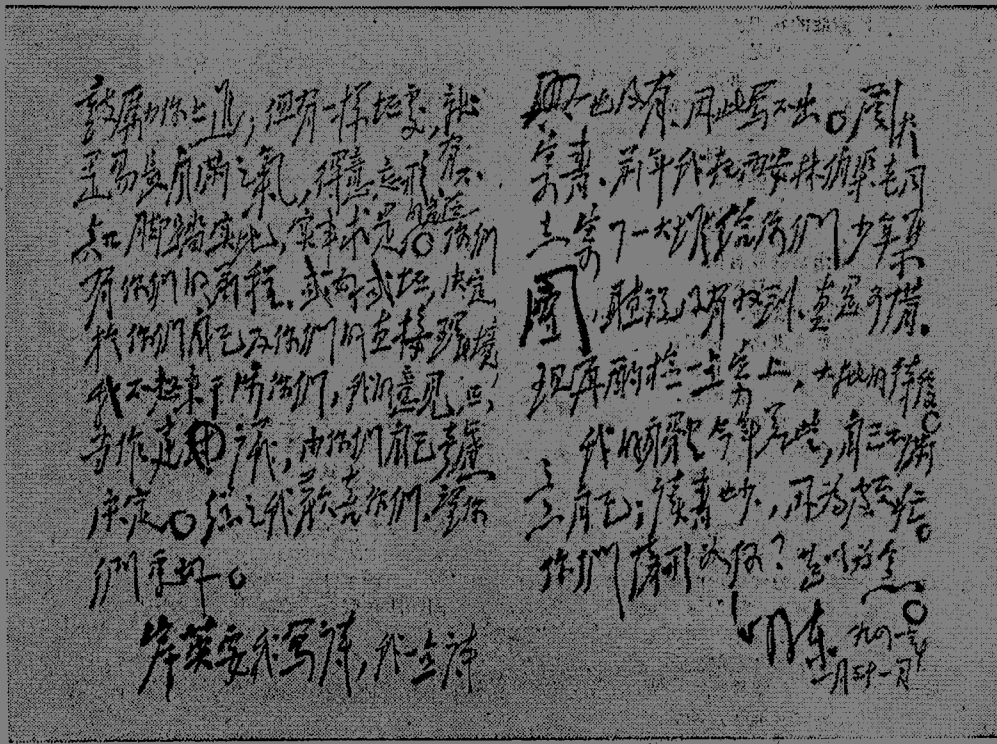 鼓励你上进；但有一样坏处，就
是易长自满之气，得意忘形，有不
知脚踏实地、实事求是的危险。你们
有你们的前程，或好或坏，决定
于你们自己及你们的直接环境，
我不想来干涉你们，我的意见，只
当作建议，由你们自己考虑
决定。总之我欢喜你们，望你
们更好。
岸英要我写诗，我一点诗
兴也没有，因此写不出。关于
寄书，前年我托西安林伯渠老同
志寄了一大堆给你们少年集
团，听说没有收到，真是可惜。
现再酌检一点寄上，大批的待后。
我的身体今年差些，自己不满
意自己；读书也少，因为颇忙。
你们情形如何？甚以为念。
毛泽东 一九四一年
一月三十一日